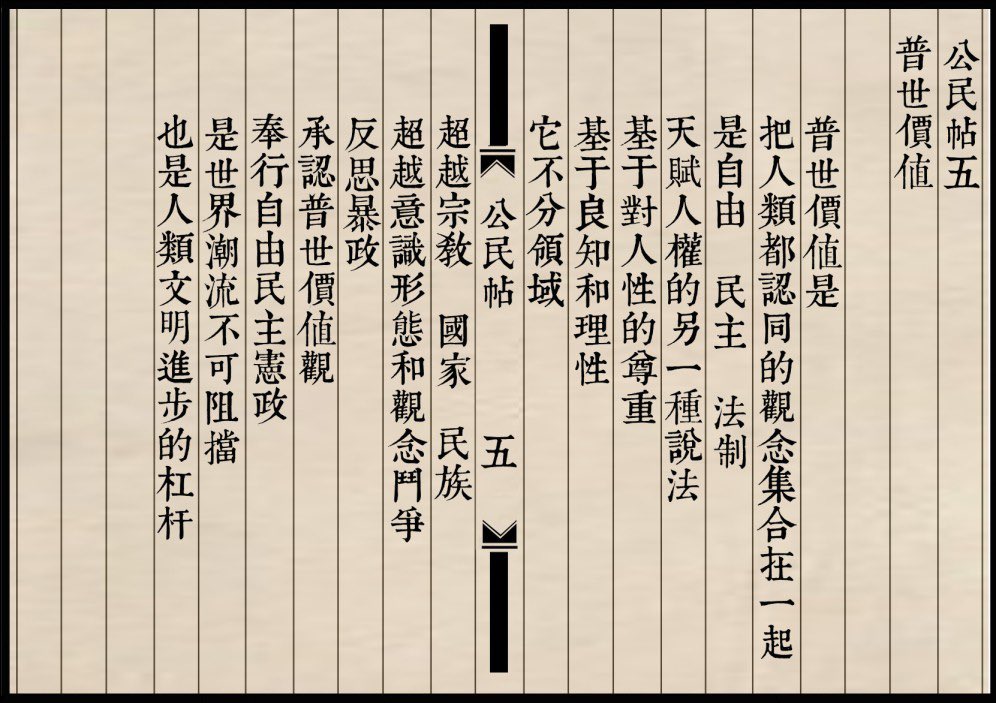 公民帖五
普世價值
普世價值是
把人類都認同的觀念集合在一起
是自由　民主　法制
天賦人權的另一種說法
基于對人性的尊重
基于良知和理性
它不分領域
公民帖　五
超越宗教　國家　民族
超越意識形態和觀念鬥爭
反思暴政
承認普世價值觀
奉行自由民主憲政
是世界潮流不可阻擋
也是人類文明進步的杠杆